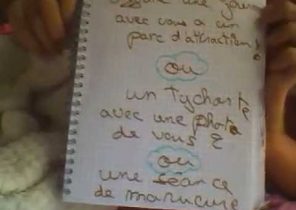 une
avec vous a un
parc d'attraction
ou
un Tychorte
avec une photo
de vous ?
ou
une séance
de manucure